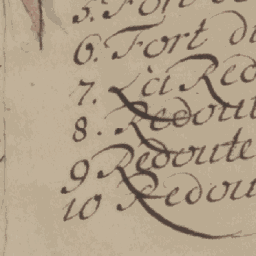 5. Fort
6. Fort d
7. La Red
8. Redout
9 Redoute
10 Redou